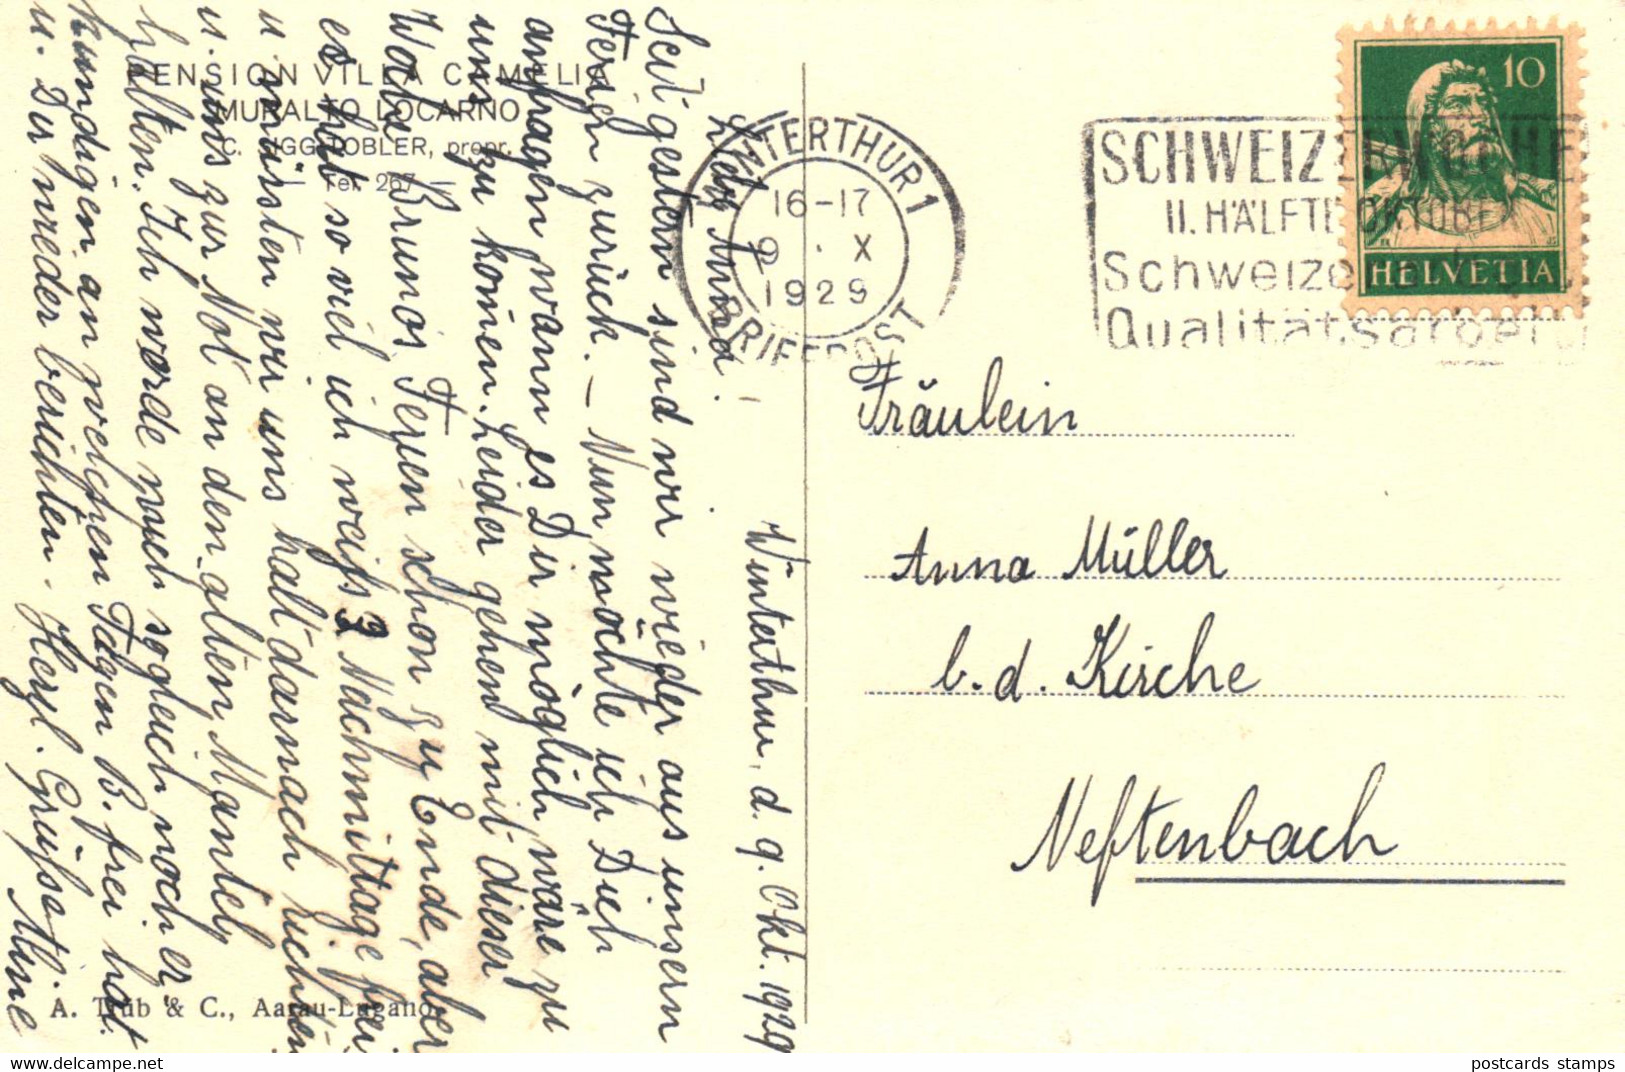 PENSION VILLA CAMELIA
MURALTO LOCARNO
C. SIGG-TOBLER, propr.
— Tel. 267 —
Winterthur, d. 9. Okt. 1929
Liebe Anna!
Seit gestern sind wir wieder aus unsern
Ferien zurück. – Nun möchte ich Dich
anfragen wann es Dir möglich wäre zu
uns zu kom̄en. Leider gehen mit dieser
Woche Brunos Ferien schon zu Ende, aber
es hat so viel ich weiss 3 Nachmittage frei
u. müssten wir uns halt darnach richten
u. uns zur Not an den alten Mantel
halten. Ich werde mich sogleich noch er
kundigen an welchen Tagen B. frei hat
u. Dir wieder berichten. Herzl. Grüsse!
A. Trüb & C., Aarau-Lugano.
WINTERTHUR 1
16–17
9. X
1929
BRIEFPOST
SCHWEIZERWOCHE
II. HÄLFTE OKTOBER
Schweizer
Qualitätsarbeit
10
HELVETIA
Fräulein
Anna Müller
b. d. Kirche
Neftenbach
www.delcampe.net
postcards stamps